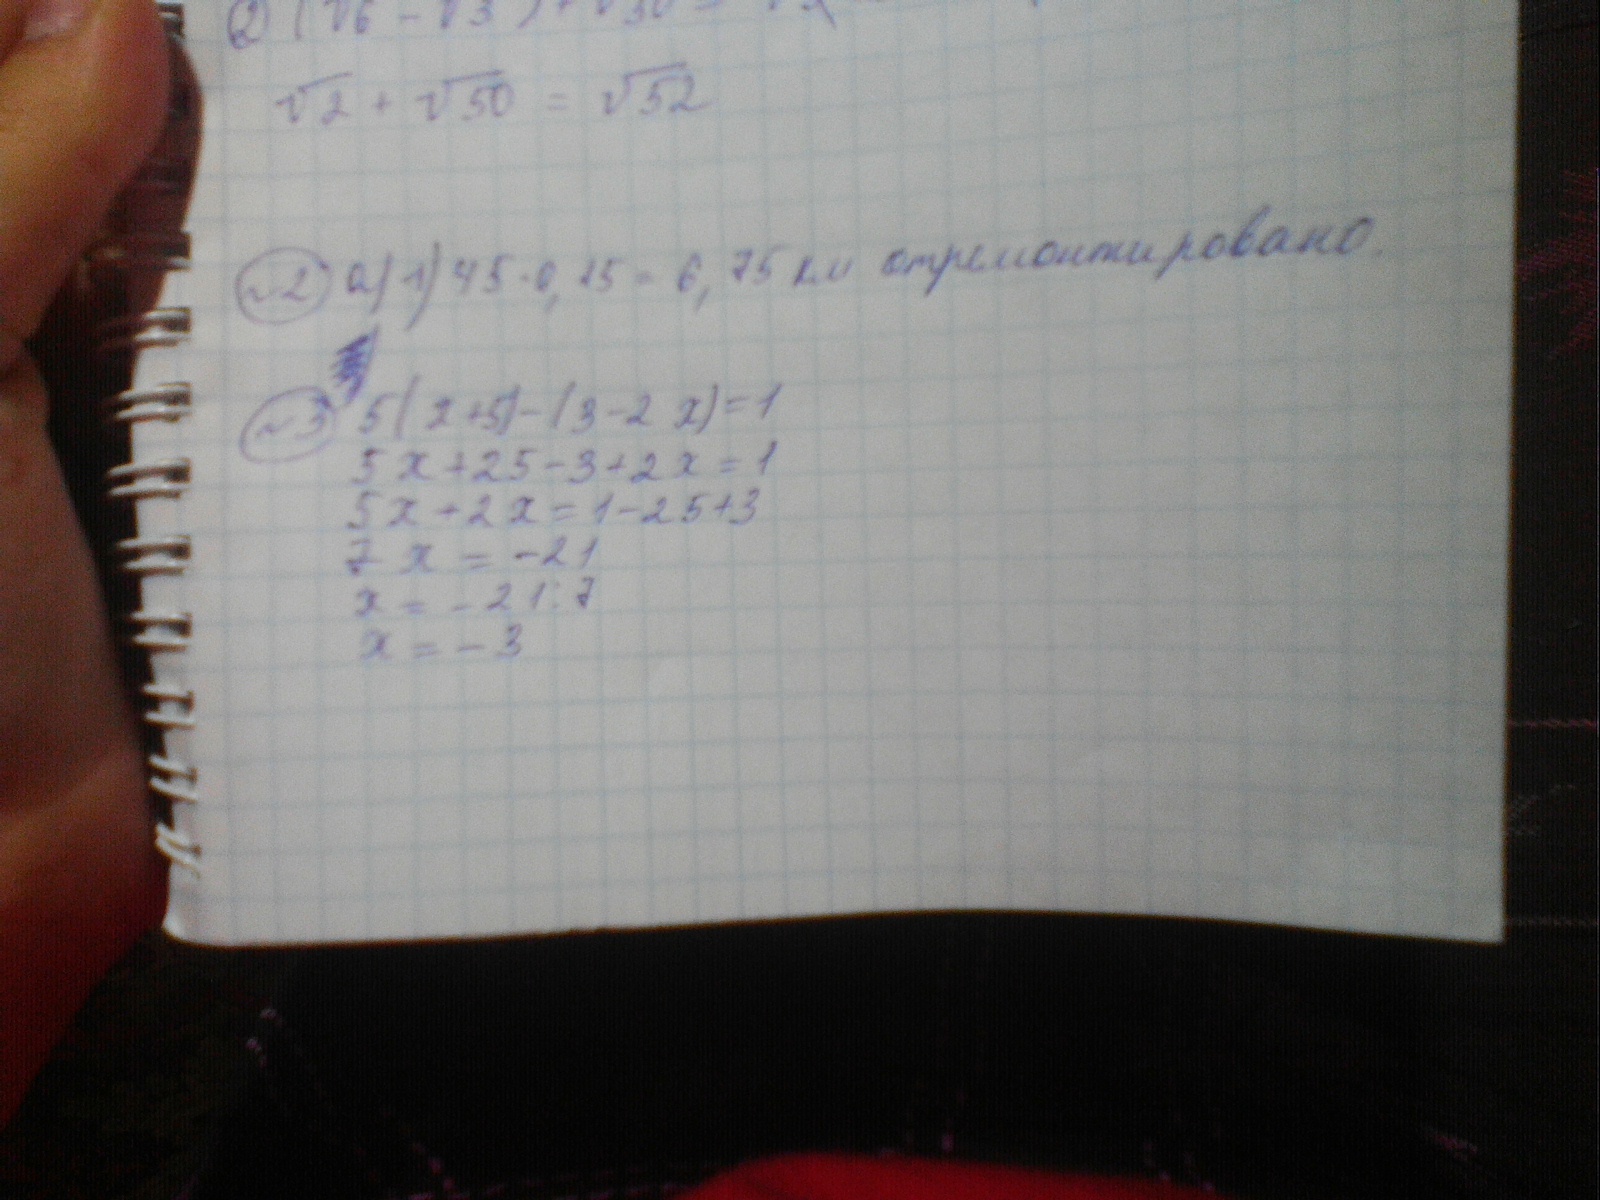 2) (√6 - √3) + √50 =
√2 + √50 = √52
№2 а) 1) 45·0,15 = 6,75 км отремонтировано.
№3 5(x+5)-(3-2x)=1
5x+25-3+2x=1
5x+2x=1-25+3
7x = -21
x = -21:7
x = -3